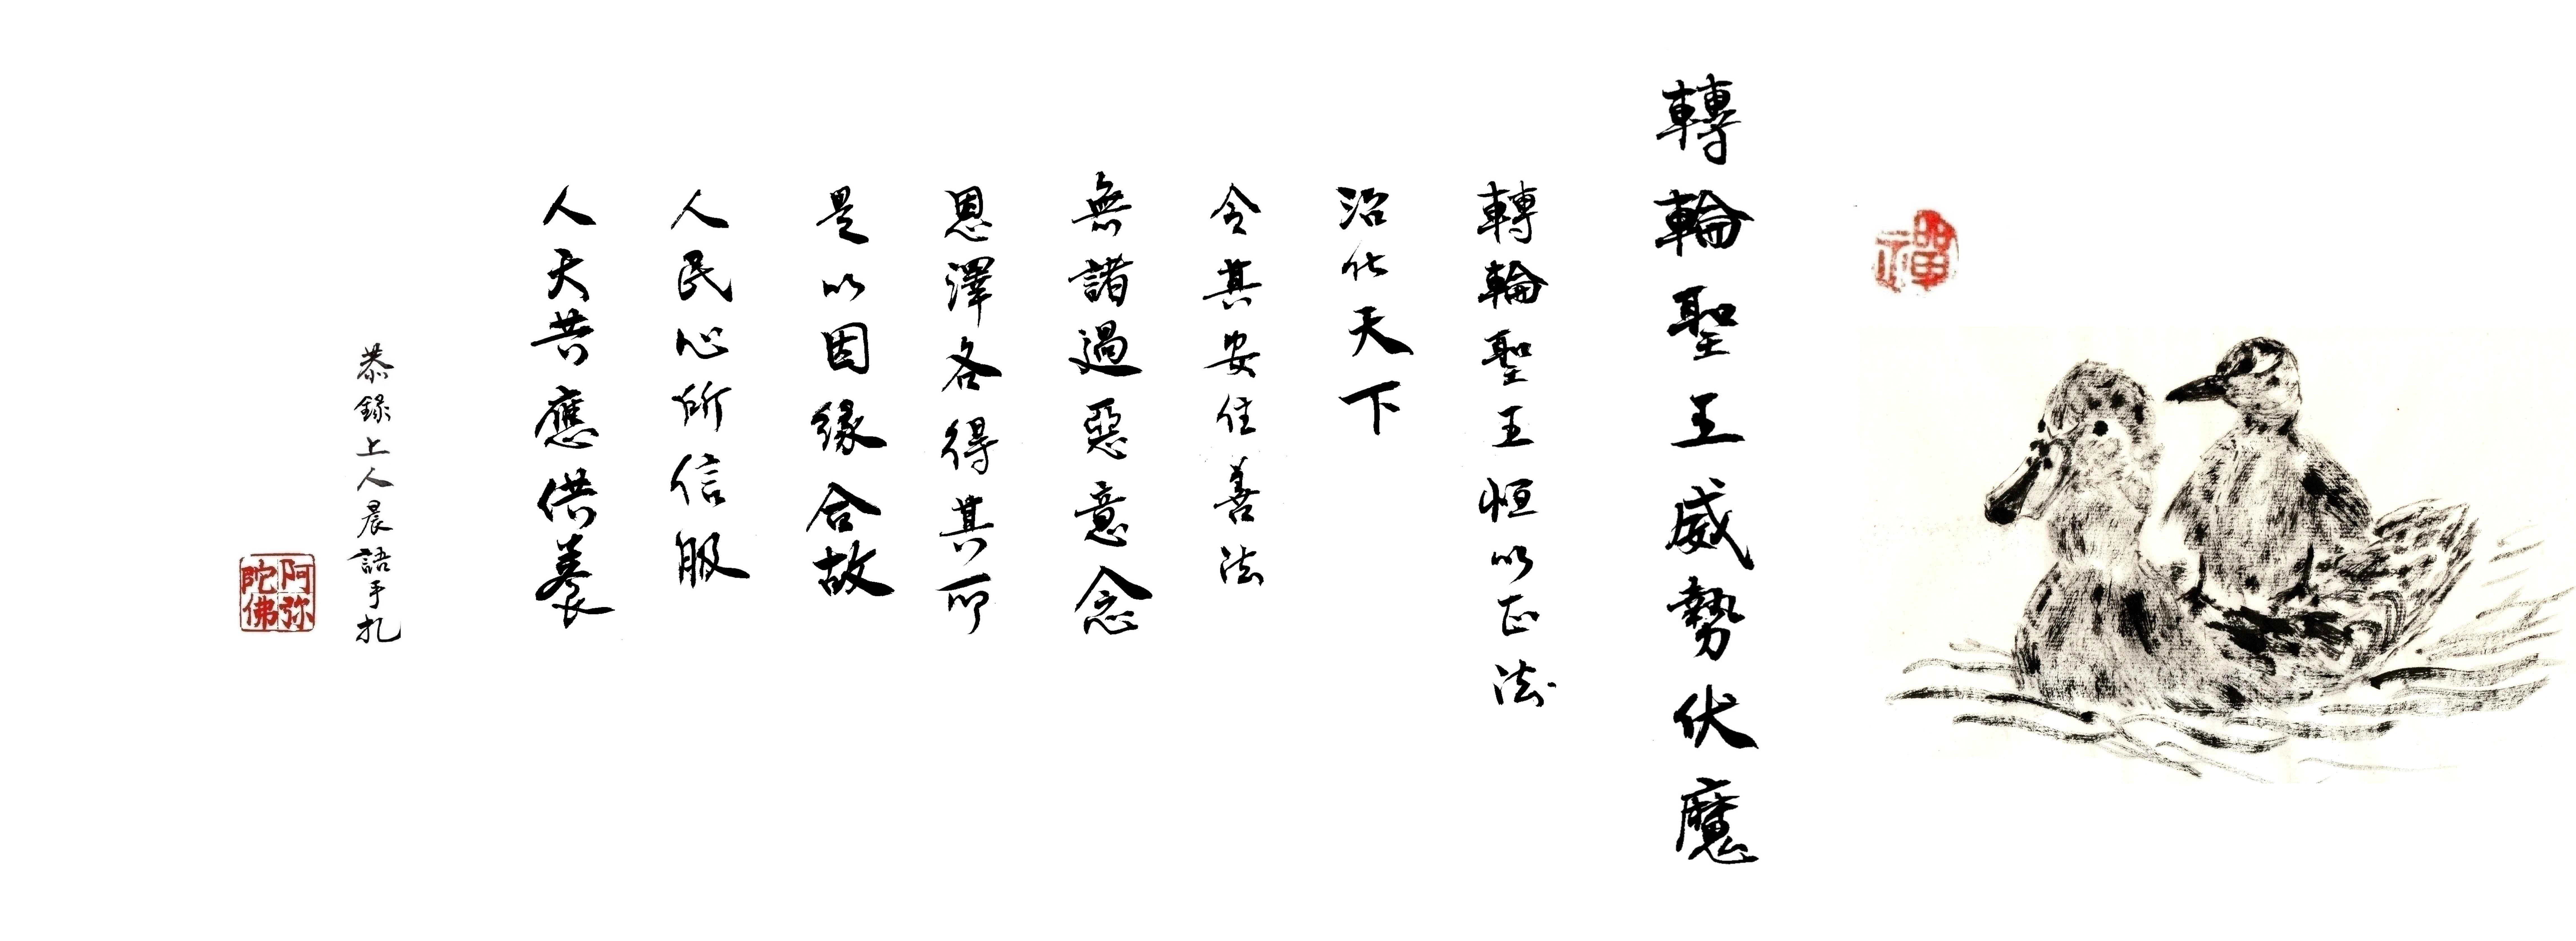 禪
轉輪聖王威勢伏魔
轉輪聖王恒以正法
治化天下
令其安住善法
無諸過惡意念
恩澤各得其所
是以因緣合故
人民心所信服
人天共應供養
恭錄上人晨語手札
阿弥陀佛